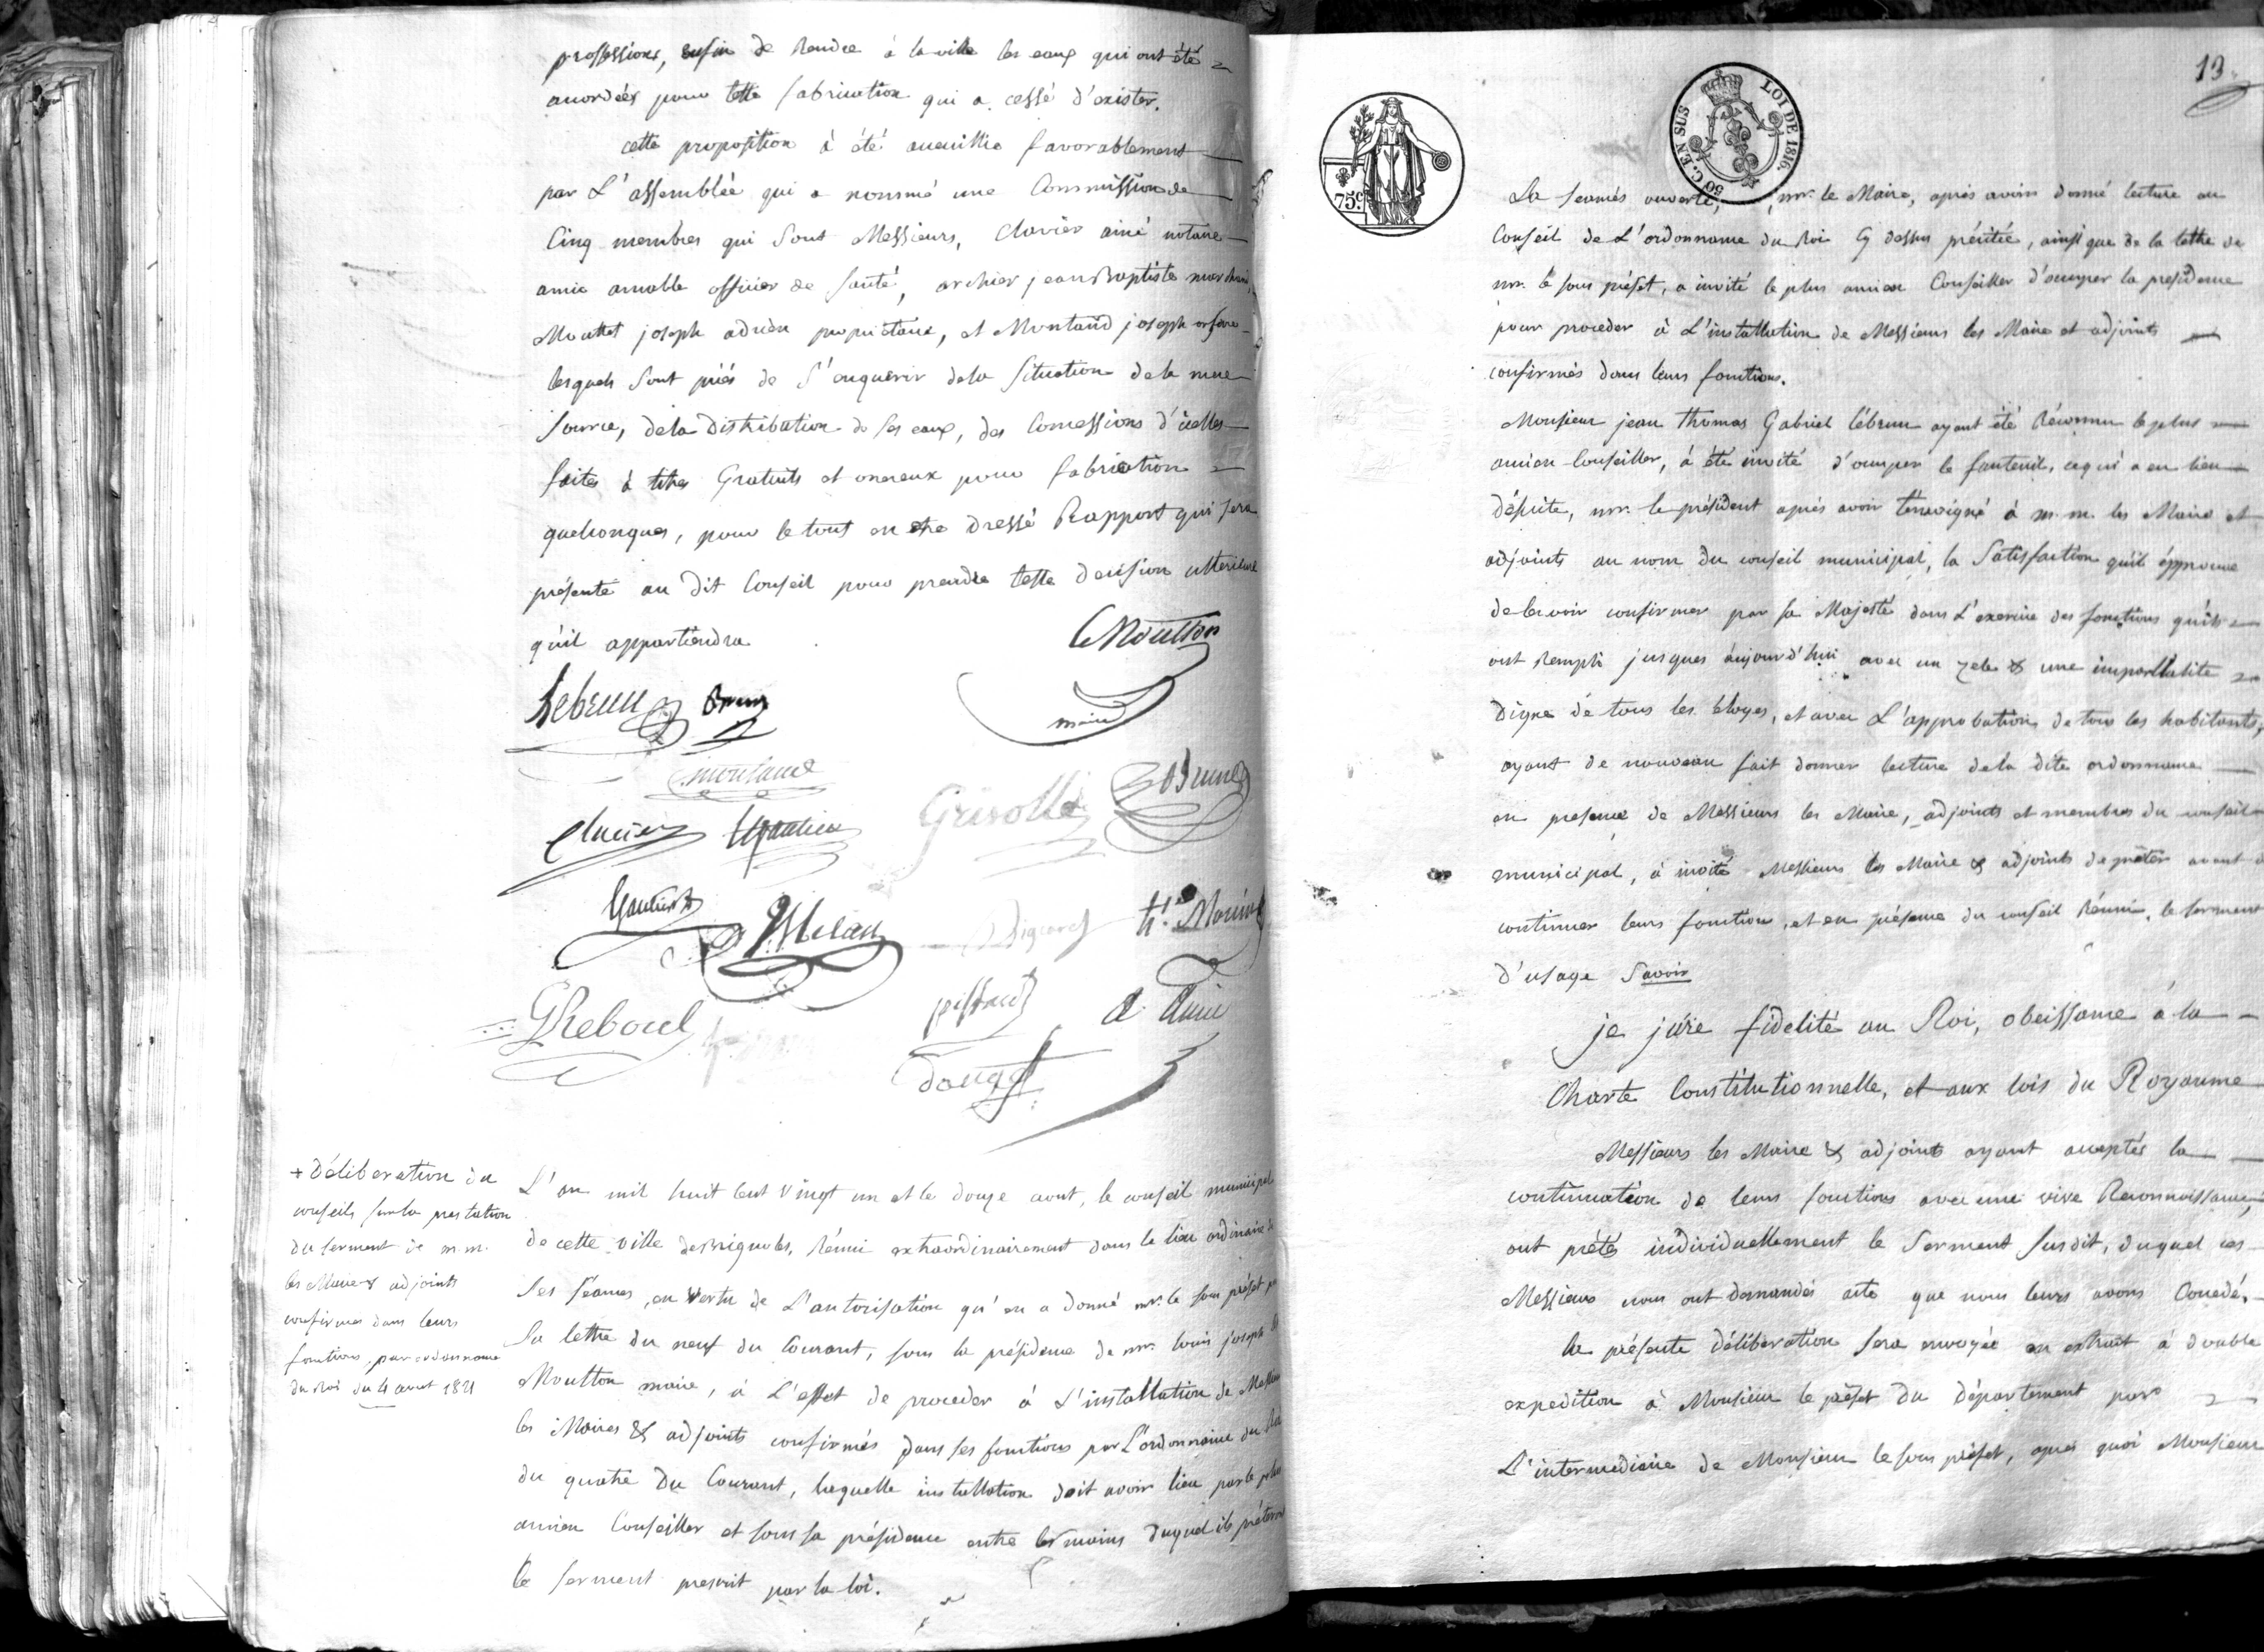 proffessions, enfin de Rendre à la ville les eaux qui ont été
accordées pour telle fabrication qui a cessé d'exister.
cette proposition à été accuillie favorablement
par L'assemblée qui a nommé une Commission de
Cinq membres qui Sont Messieurs, Clavier ainé notaire
amic amable officier de santé, archier jean Baptiste marchand
Mouttet joseph adrien propriétaire, et Montaud joseph orfevre
lesquels Sont priés de S'enquérir dela Situation dela mere
Source, dela Distribution de ses eaux, des Concessions d'icelles
faites à titres Gratuits et onereux pour fabrication
quelconques, pour le tout en etre Dressé Rapport qui sera
présenté au Dit Conseil pour prendre telle décision ulterieure
qu'il appartiendra
Moutton
maire
Lebrun Brun
montaud
Clavier Gautier Grisolle Brunet
Gautier
Melan
Reboul
pissaud
a. Amic
+ Déliberation du
conseils sur la prestation
du serment de m.m.
les Maire & adjoints
confirmés dans leurs
fonctions, par ordonnance
du Roi du 4 aout 1821
L'an mil huit Cent Vingt un et le douze aout, le conseil municipal
de cette ville de Brignoles, Réuni extraordinairement dans le lieu ordinaire de
Ses Séances, en Vertu de L'autorisation qu'en a donné mr. le sous préfet par
Sa lettre du neuf du Courant, sous la présidence de mr. louis joseph
Moutton maire, à L'effet de proceder à L'installation de Messieurs
les Maires & adjoints confirmés dans ses fonctions par L'ordonnance du Roi
du quatre Du Courant, laquelle installation doit avoir lieu par le plus
ancien Conseiller et sous sa présidence entre les mains Duquel ils préteront
le serment prescrit par la loi.
13
75c
50 C. EN SUS LOI DE 1816.
La séance ouverte, mr. le Maire, après avoir donné lecture au
Conseil de L'ordonnance du Roi Cy dessus précitée, ainsi que de la lettre de
mr. le sous préfet, a invité le plus ancien Conseiller d'occuper la présidence
pour proceder à L'installation de Messieurs les Maire et adjoints
confirmés dans leurs fonctions.
Monsieur jean thomas Gabriel Lébrun ayant été Réconnu le plus
ancien Conseiller, à été invité d'occuper le fauteuil, ce qui a eu lieu
Désuite, mr. le président après avoir témoigné à m.m. les Maire et
adjoints au nom du conseil municipal, la Satisfaction qu'il éprouve
de les voir confirmer par sa Majesté dans L'exercice des fonctions qu'ils
ont Rempli jusques aujourd'hui avec un zele & une impartialité
Digne de tous les Eloges, et avec L'approbation de tous les habitants,
ayant de nouveau fait donner lecture dela dite ordonnance
en présence de Messieurs les Maire, adjoints et membres du conseil
municipal, à invité Messieurs les Maire & adjoints de préter avant de
continuer leurs fonction, et en présence du conseil Réuni, le serment
d'usage Savoir
je jure fidelité au Roi, obeissance à la
Charte Constitutionnelle, et aux lois du Royaume
Messieurs les Maire & adjoints ayant acceptés la
continuation de leurs fonctions avec une vive Reconnoissance,
ont prétés individuellement le Serment Susdit, duquel ces
Messieurs nous ont demandés acte que nous leurs avons Concédé,
la présente Déliberation sera envoyée en extrait à double
expedition à Monsieur le préfet du Département par
L'intermediaire de Monsieur le sous préfet, après quoi Monsieur